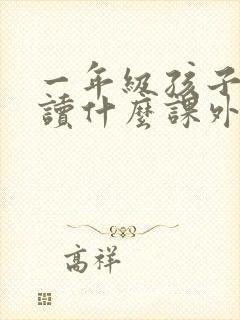 一年級孩子
讀什麼課外
高祥